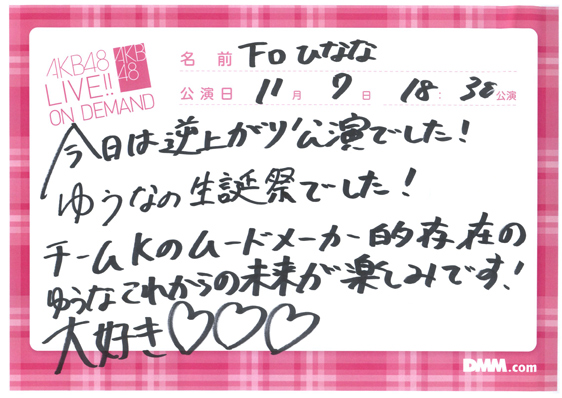 AKB48
LIVE!!
ON DEMAND
AKB
48
名前 下口ひなな
公演日 11月 7日 18:30公演
今日は逆上がり公演でした!
ゆうなの生誕祭でした!
チームKのムードメーカー的存在の
ゆうなこれからの未来が楽しみです!
大好き♡♡♡
DMM.com